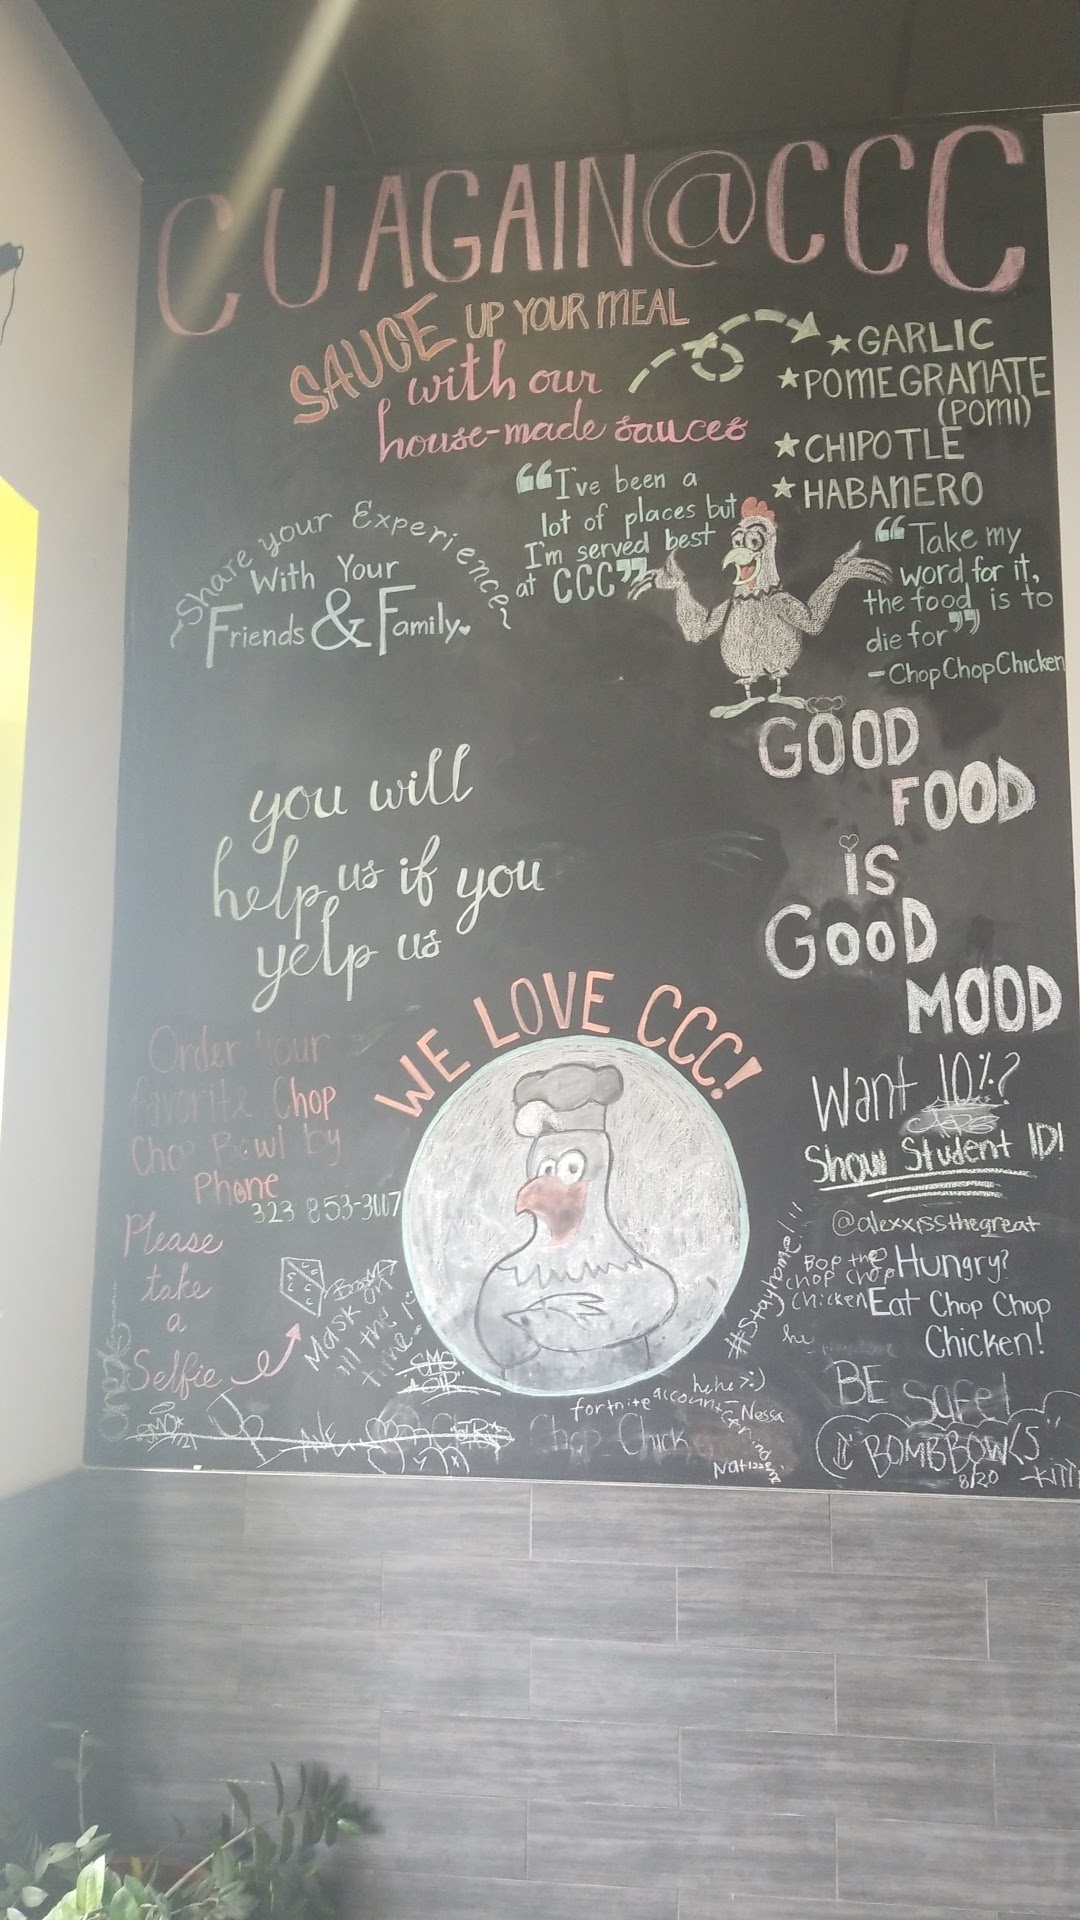 CU AGAIN@CCC
SAUCE UP YOUR MEAL
with our
house-made sauces
★ GARLIC
★ POMEGRANATE
(POMI)
★ CHIPOTLE
★ HABANERO
~Share your Experience~
With Your
Friends & Family
“I've been a
lot of places but
I'm served best
at CCC”
“Take my
word for it,
the food is to
die for”
- ChopChopChicken
you will
help us if you
yelp us
GOOD
FOOD
is
GOOD
MOOD
WE LOVE CCC!
Order Your
favorite Chop
Chop Bowl by
Phone
323 853-3007
Please
take
a
Selfie
Mask on
all the
time
Want 10%?
Show Student ID!
@alexxissthegreat
#Stayhome!!!
Bop the
chop chop
chicken
Hungry?
Eat Chop Chop
Chicken!
BE Safe!
hehe >:)
fortnite account-
Nessa
Chop Chick
BOMBBOWLS
8/20